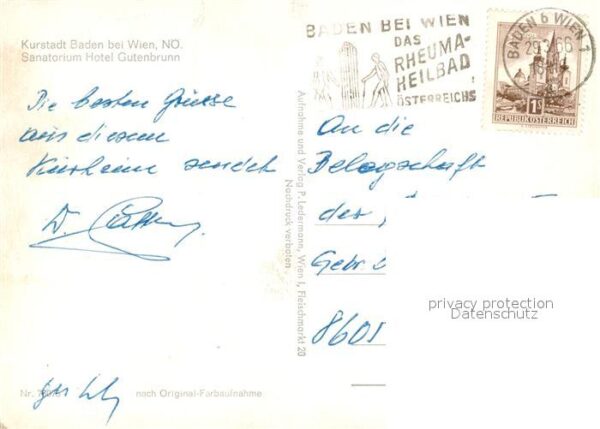 Kurstadt Baden bei Wien, NÖ.
Sanatorium Hotel Gutenbrunn
BADEN BEI WIEN
DAS
RHEUMA-
HEILBAD
ÖSTERREICHS
BADEN 6 WIEN 1
29.3.66
1S
REPUBLIK ÖSTERREICH
Die besten Grüsse
aus diesem
Kurheim sendet
An die
Belegschaft
der
Gebr.
8601
Aufnahme und Verlag P. Ledermann, Wien I, Fleischmarkt 20
Nachdruck verboten
privacy protection
Datenschutz
Nr.
nach Original-Farbaufnahme